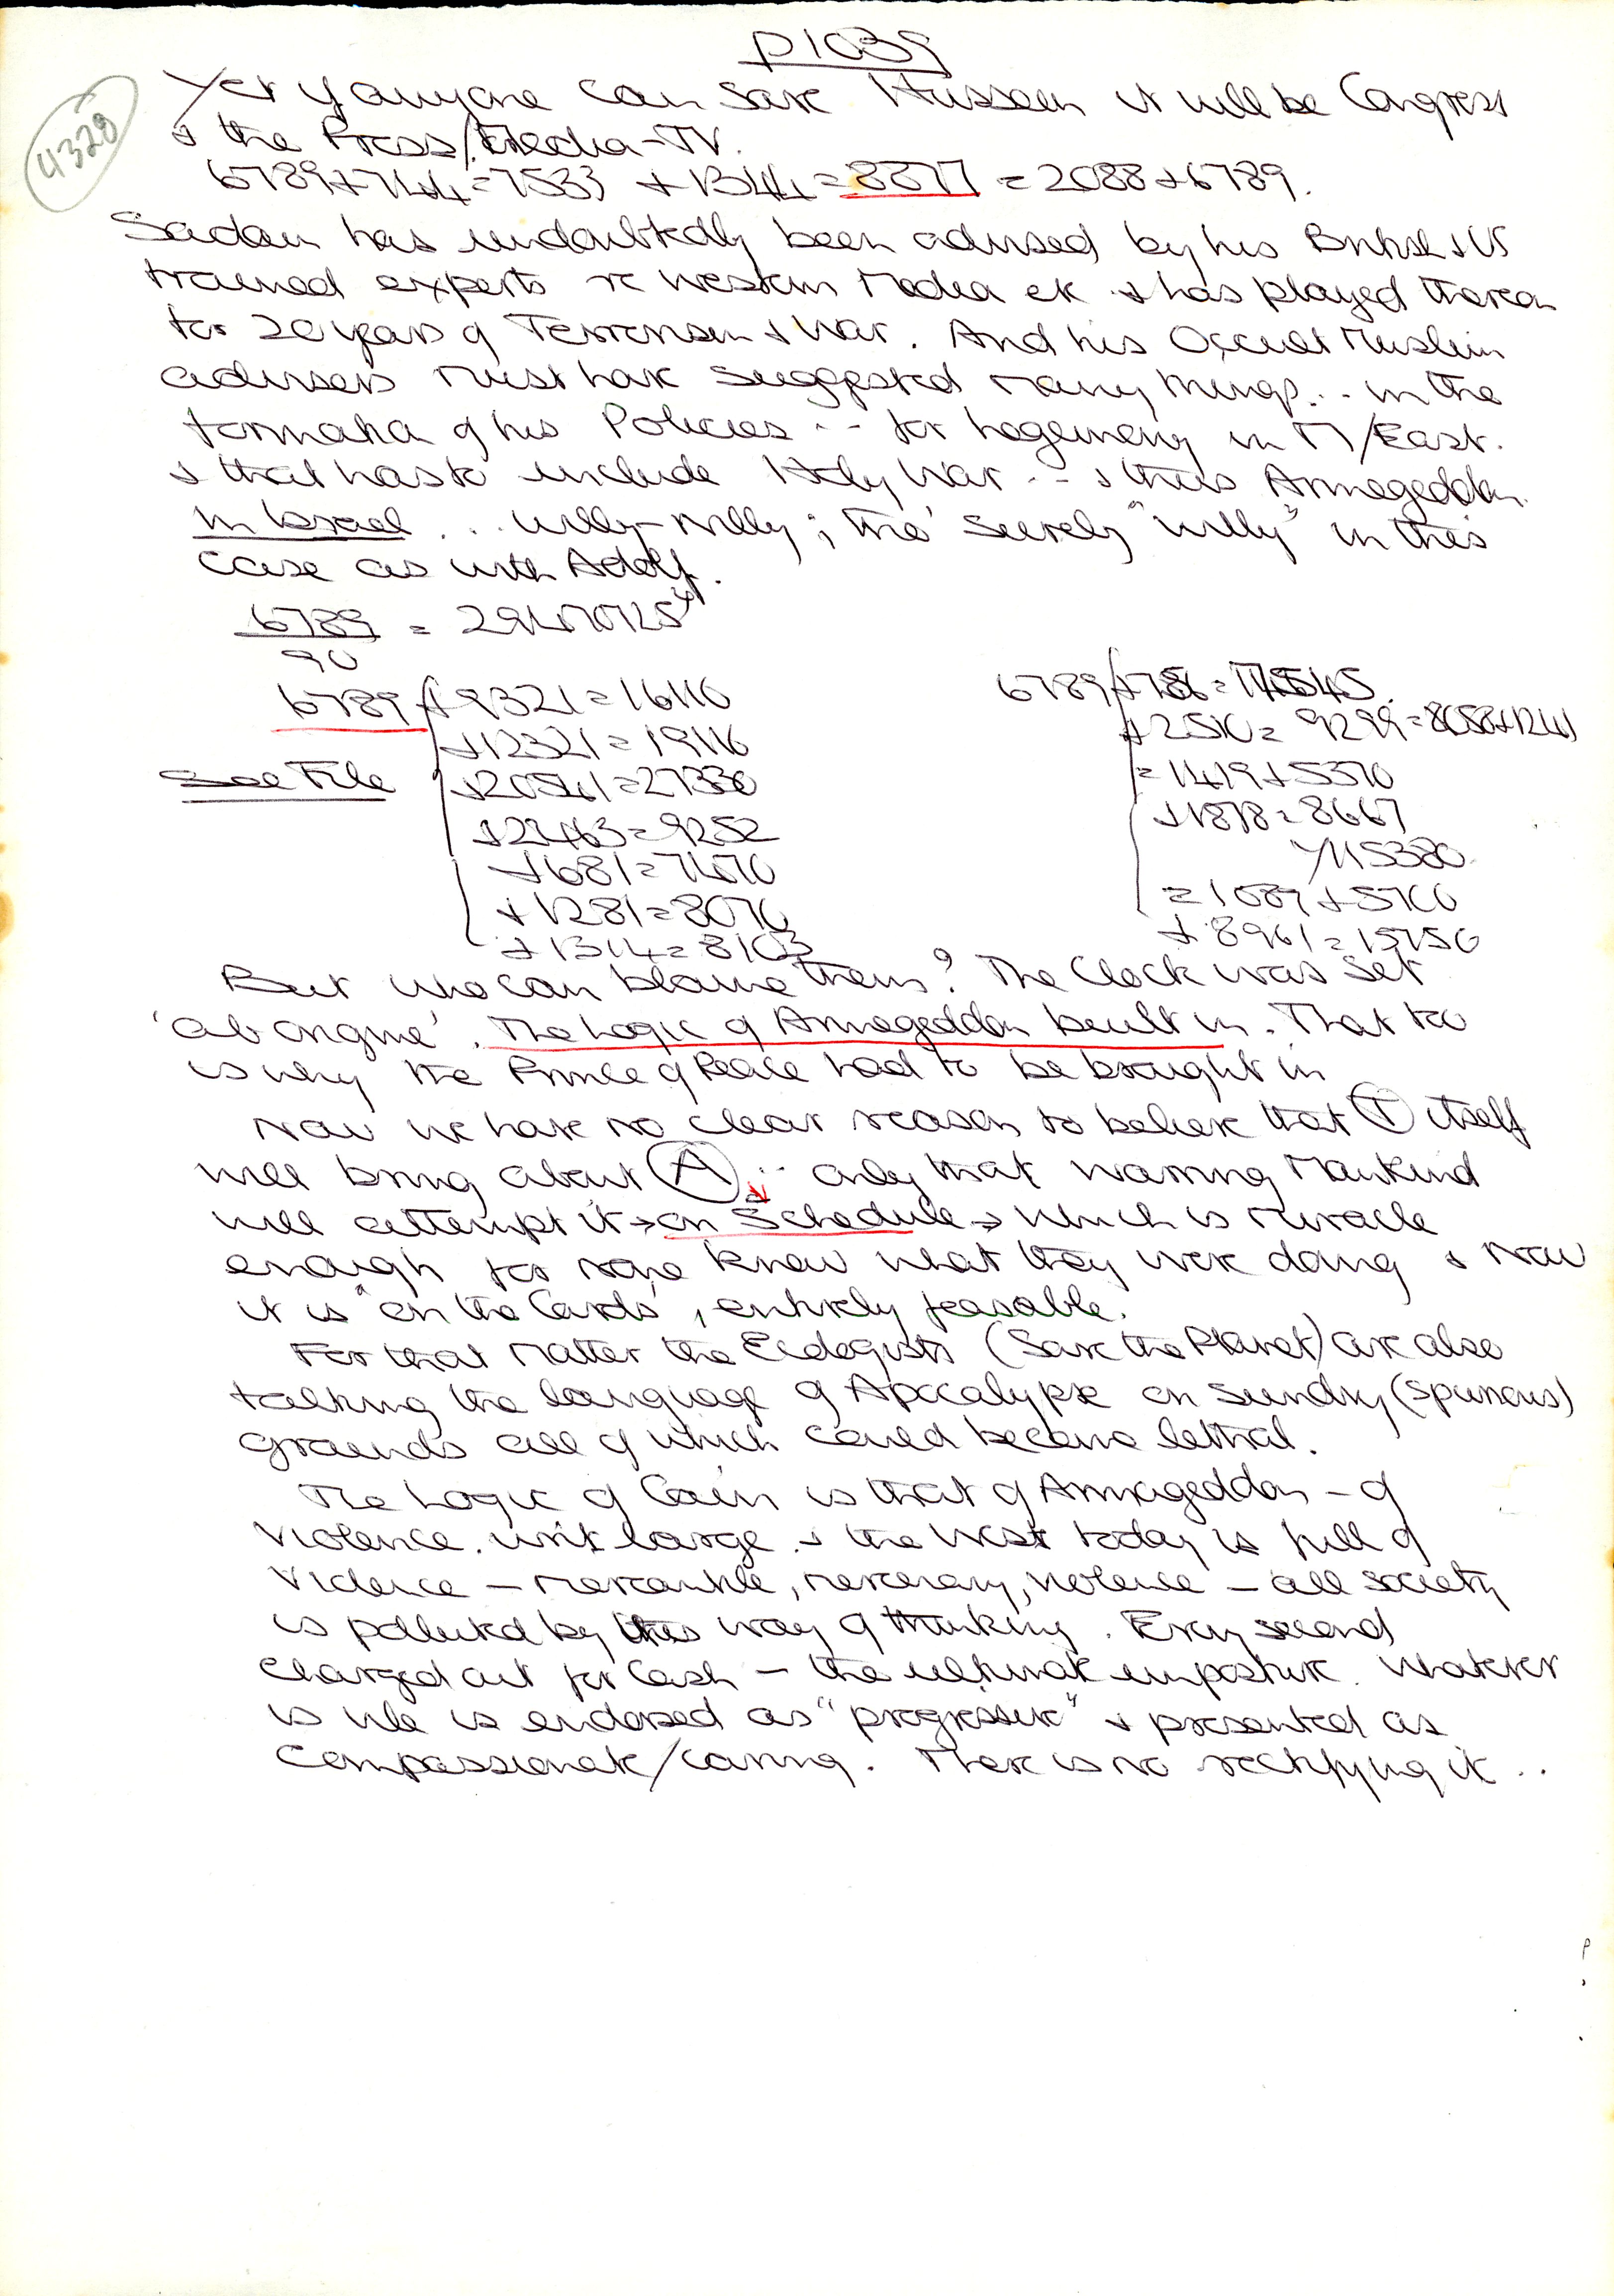 p1039
4328
Yet if anyone can save Hussein it will be Congress
& the Press/Media-TV.
6789+744=7533 +1344=8877 = 2088+6789.
Sadam has undoubtedly been advised by his British & US
trained experts re Western Media etc & has played thereon
for 20 years of Terrorism & War. And his Occult Muslim
advisers must have suggested many things... in the
formation of his Policies -- for hegemony in M/East.
& that has to include Holy War -- & thus Armageddon
in Israel ... willy-nilly; tho' surely "willy" in this
case as with Adolf.
6789 =
90
6789 + 9321=16110
+12321=19116
See File +20541=27330
+2463=9252
+681=7470
+1281=8070
+1314=8103
6789+786=
+2510= 9299=8058+1241
=1419+5370
+1878=8667
=1089+5700
+8961=15750
But who can blame them? The Clock was set
'ab origine'. The Logic of Armageddon built in. That too
is why the Prince of Peace had to be brought in
Now we have no clear reason to believe that (T) itself
will bring about (A) .. only that warring Mankind
will attempt it → on Schedule → which is miracle
enough for none knew what they were doing & now
it is "on the Cards", entirely feasable.
For that matter the Ecologists (Save the Planet) are also
talking the language of Apocalypse on sundry (spurious)
grounds all of which could become lethal.
The Logic of Cain is that of Armageddon - of
Violence. writ large. & the West today is full of
Violence - Mercantile, mercenary, violence - all society
is polluted by this way of thinking. Every second
charged out for Cash - the ultimate imposture. Whatever
is vile is endorsed as "progressive" & presented as
Compassionate/caring. There is no rectifying it ..